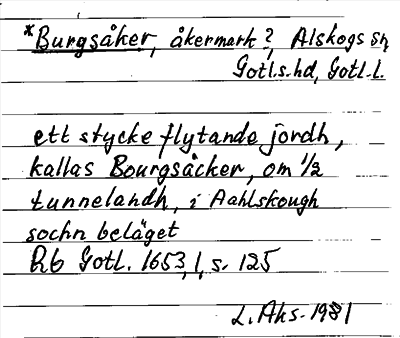 *Burgsåker, åkermark?, Alskogs sn
Gotl.s.hd, Gotl.l.
ett stycke flytande jordh,
kallas Bourgsåcker, om 1/2
tunnelandh, i Aahlskough
sochn beläget
Rb Gotl. 1653,1, s. 125
L. Ahs. 1981